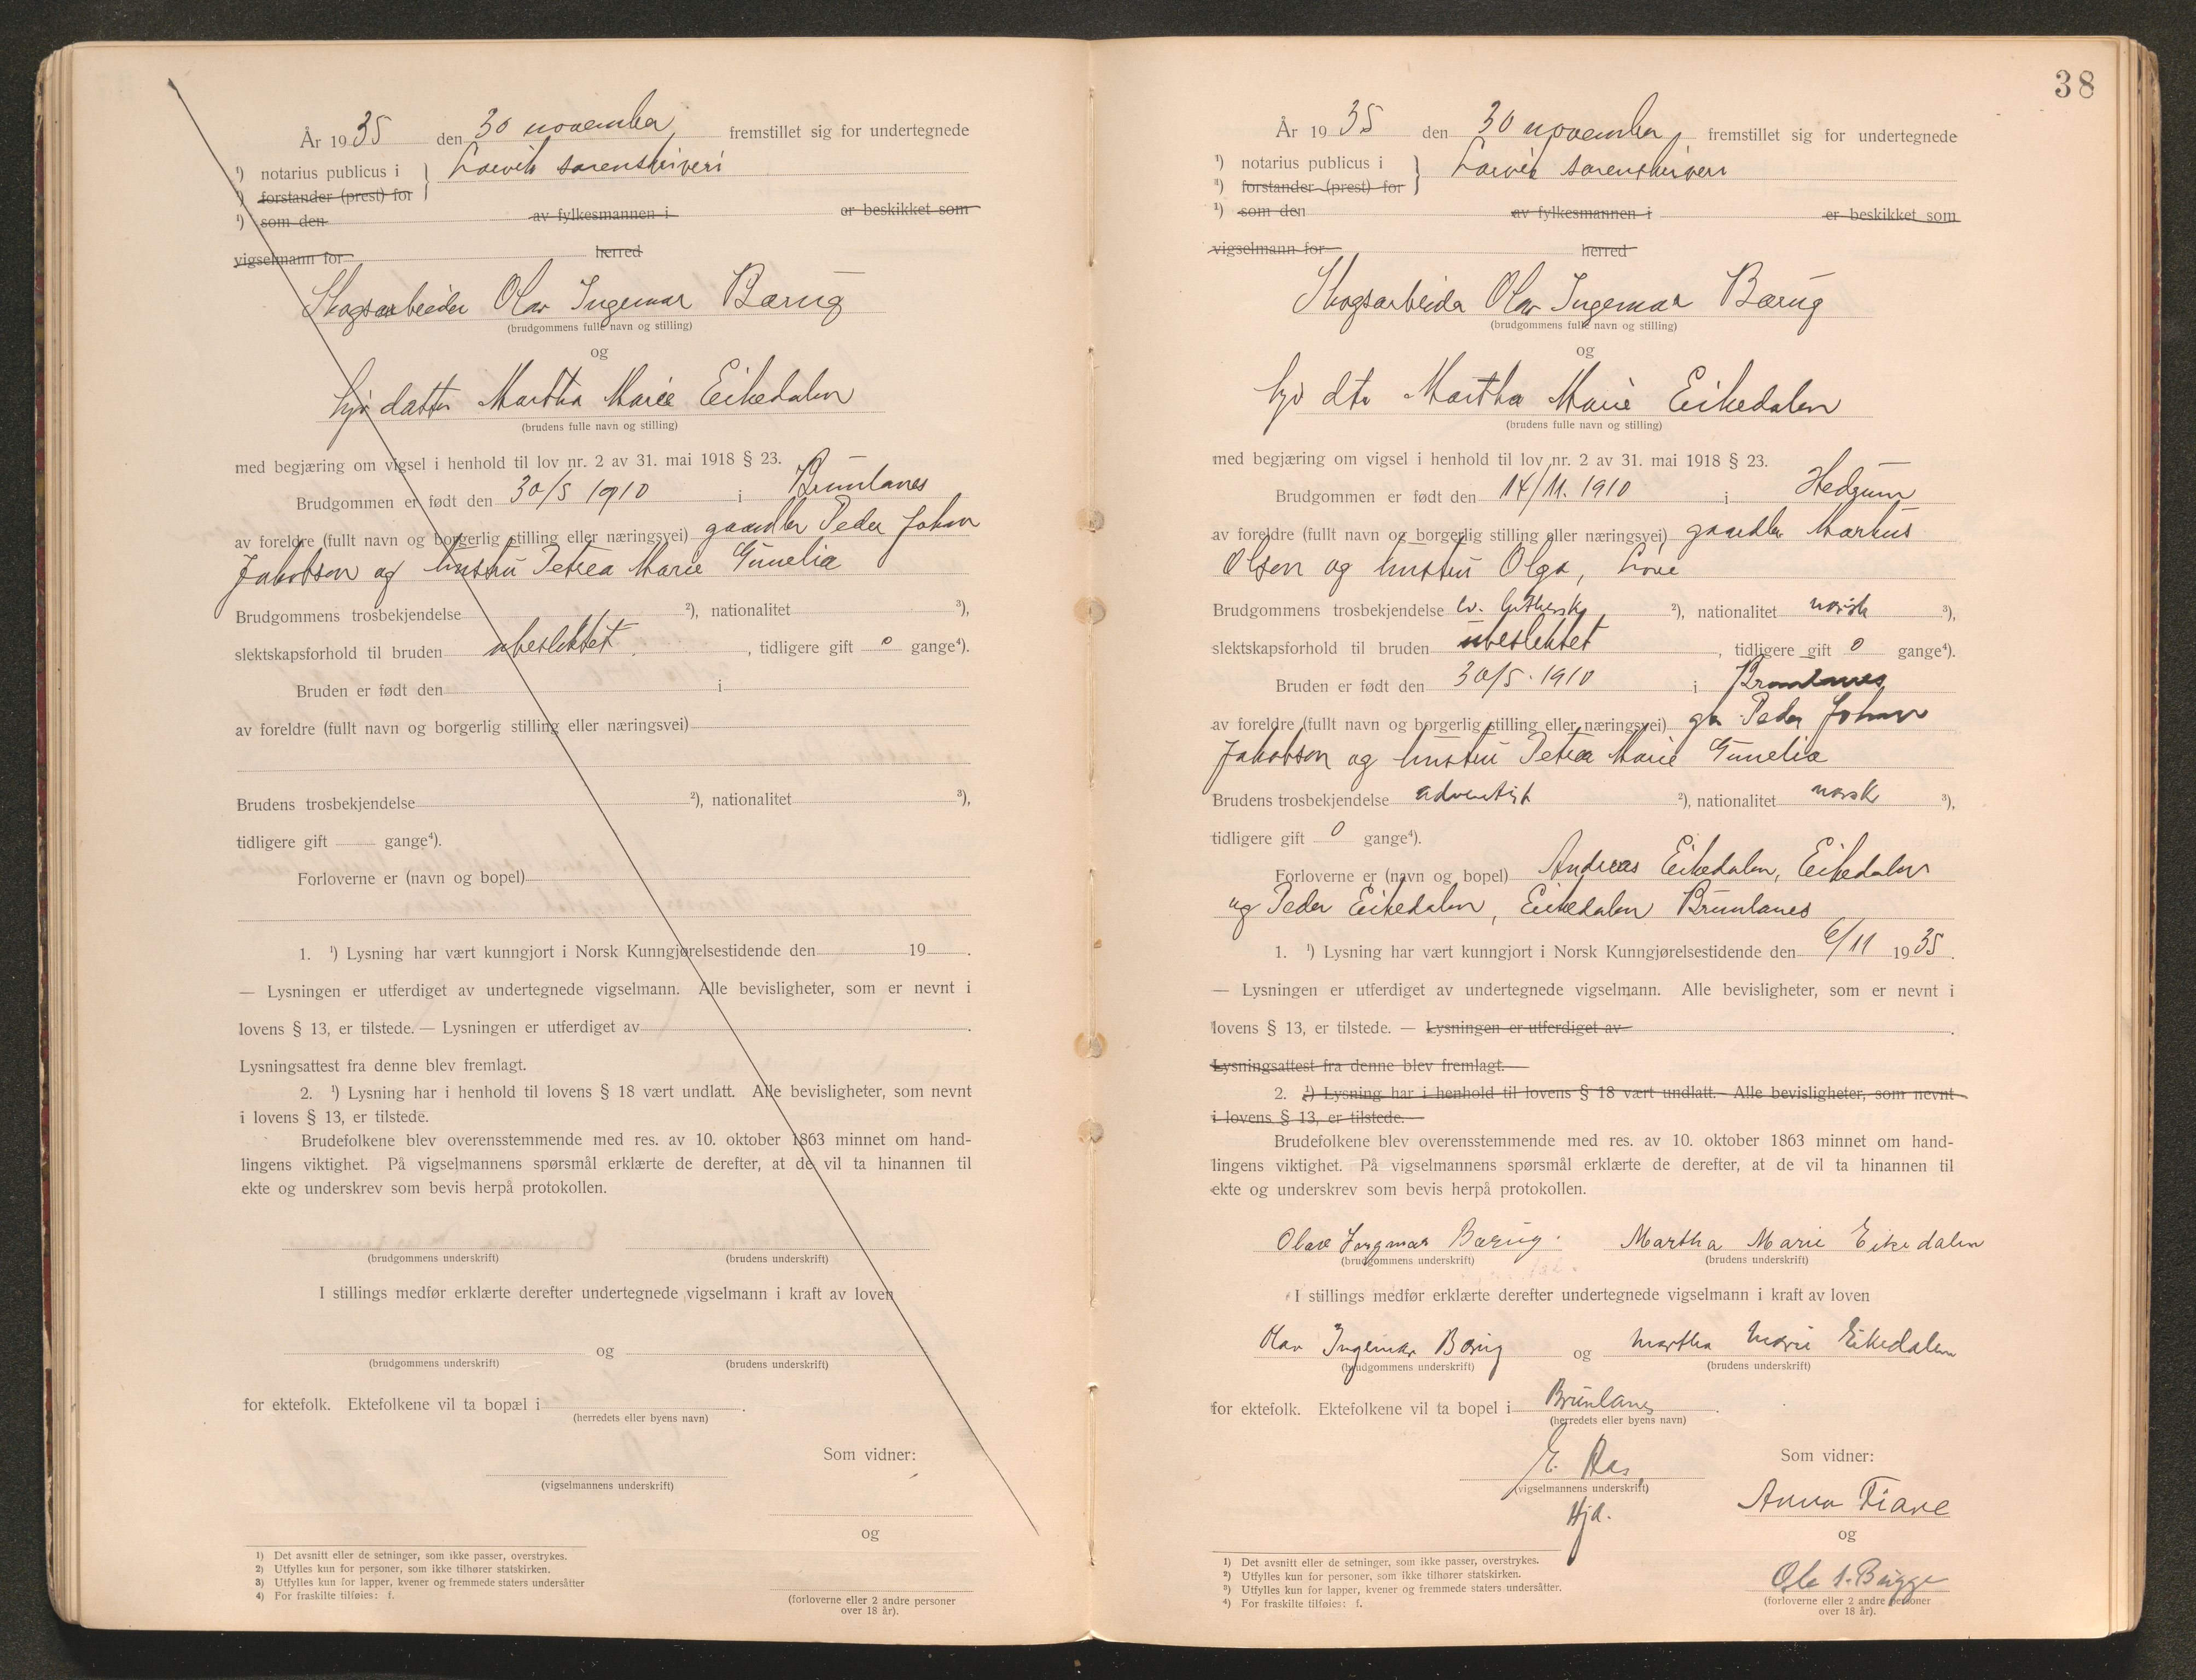 År 1935 den 30 november fremstillet sig for undertegnede
¹) notarius publicus i } Larvik sorenskriveri
¹) forstander (prest) for
¹) som den av fylkesmannen i er beskikket som
vigselmann for herred
Skogsarbeider Olav Ingemar Bærug
(brudgommens fulle navn og stilling)
og
hjv datter Martha Marie Eikedalen
(brudens fulle navn og stilling)
med begjæring om vigsel i henhold til lov nr. 2 av 31. mai 1918 § 23.
Brudgommen er født den 30/5 1910 i Brunlanes
av foreldre (fullt navn og borgerlig stilling eller næringsvei) gaardbr Peder Johan
Jakobsen og hustru Petrea Marie Gunelia
Brudgommens trosbekjendelse ²), nationalitet ³),
slektskapsforhold til bruden ubeslektet, tidligere gift 0 gange⁴).
Bruden er født den i
av foreldre (fullt navn og borgerlig stilling eller næringsvei)
Brudens trosbekjendelse ²), nationalitet ³),
tidligere gift gange⁴).
Forloverne er (navn og bopel)
1. ¹) Lysning har vært kunngjort i Norsk Kunngjørelsestidende den 19 .
— Lysningen er utferdiget av undertegnede vigselmann. Alle bevisligheter, som er nevnt i
lovens § 13, er tilstede. — Lysningen er utferdiget av .
Lysningsattest fra denne blev fremlagt.
2. ¹) Lysning har i henhold til lovens § 18 vært undlatt. Alle bevisligheter, som nevnt
i lovens § 13, er tilstede.
Brudefolkene blev overensstemmende med res. av 10. oktober 1863 minnet om hand-
lingens viktighet. På vigselmannens spørsmål erklærte de derefter, at de vil ta hinannen til
ekte og underskrev som bevis herpå protokollen.
(brudgommens underskrift) (brudens underskrift)
I stillings medfør erklærte derefter undertegnede vigselmann i kraft av loven
og
(brudgommens underskrift) (brudens underskrift)
for ektefolk. Ektefolkene vil ta bopæl i .
(herredets eller byens navn)
Som vidner:
(vigselmannens underskrift)
og
1) Det avsnitt eller de setninger, som ikke passer, overstrykes.
2) Utfylles kun for personer, som ikke tilhører statskirken.
3) Utfylles kun for lapper, kvener og fremmede staters undersåtter
4) For fraskilte tilføies: f.
(forloverne eller 2 andre personer
over 18 år).
38
År 1935 den 30 november fremstillet sig for undertegnede
¹) notarius publicus i } Larvik sorenskriveri
¹) forstander (prest) for
¹) som den av fylkesmannen i er beskikket som
vigselmann for herred
Skogsarbeider Olav Ingemar Bærug
(brudgommens fulle navn og stilling)
og
hjv dtr Martha Marie Eikedalen
(brudens fulle navn og stilling)
med begjæring om vigsel i henhold til lov nr. 2 av 31. mai 1918 § 23.
Brudgommen er født den 14/11. 1910 i Hedrum
av foreldre (fullt navn og borgerlig stilling eller næringsvei) gaardbr Markus
Olsen og hustru Olga,
Brudgommens trosbekjendelse ev. luthersk ²), nationalitet norsk ³),
slektskapsforhold til bruden ubeslektet, tidligere gift 0 gange⁴).
Bruden er født den 30/5. 1910 i Brunlanes
av foreldre (fullt navn og borgerlig stilling eller næringsvei) gbr Peder Johan
Jakobsen og hustru Petrea Marie Gunelia
Brudens trosbekjendelse adventist ²), nationalitet norsk ³),
tidligere gift 0 gange⁴).
Forloverne er (navn og bopel) Andreas Eikedalen, Eikedalen
og Peder Eikedalen, Eikedalen Brunlanes
1. ¹) Lysning har vært kunngjort i Norsk Kunngjørelsestidende den 6/11 1935.
— Lysningen er utferdiget av undertegnede vigselmann. Alle bevisligheter, som er nevnt i
lovens § 13, er tilstede. — Lysningen er utferdiget av .
Lysningsattest fra denne blev fremlagt.
2. ¹) Lysning har i henhold til lovens § 18 vært undlatt. Alle bevisligheter, som nevnt
i lovens § 13, er tilstede.
Brudefolkene blev overensstemmende med res. av 10. oktober 1863 minnet om hand-
lingens viktighet. På vigselmannens spørsmål erklærte de derefter, at de vil ta hinannen til
ekte og underskrev som bevis herpå protokollen.
Olav Ingmar Bærug. Martha Marie Eikedalen
(brudgommens underskrift) (brudens underskrift)
I stillings medfør erklærte derefter undertegnede vigselmann i kraft av loven
Olav Ingemar Bærug og Martha Marie Eikedalen
(brudgommens underskrift) (brudens underskrift)
for ektefolk. Ektefolkene vil ta bopel i Brunlanes.
(herredets eller byens navn)
E. Aas Som vidner:
(vigselmannens underskrift)
Hjd. Anna Tiare
og
1) Det avsnitt eller de setninger, som ikke passer, overstrykes.
2) Utfylles kun for personer, som ikke tilhører statskirken.
3) Utfylles kun for lapper, kvener og fremmede staters undersåtter.
4) For fraskilte tilføies: f.
Ole S. Bugge
(forloverne eller 2 andre personer
over 18 år).